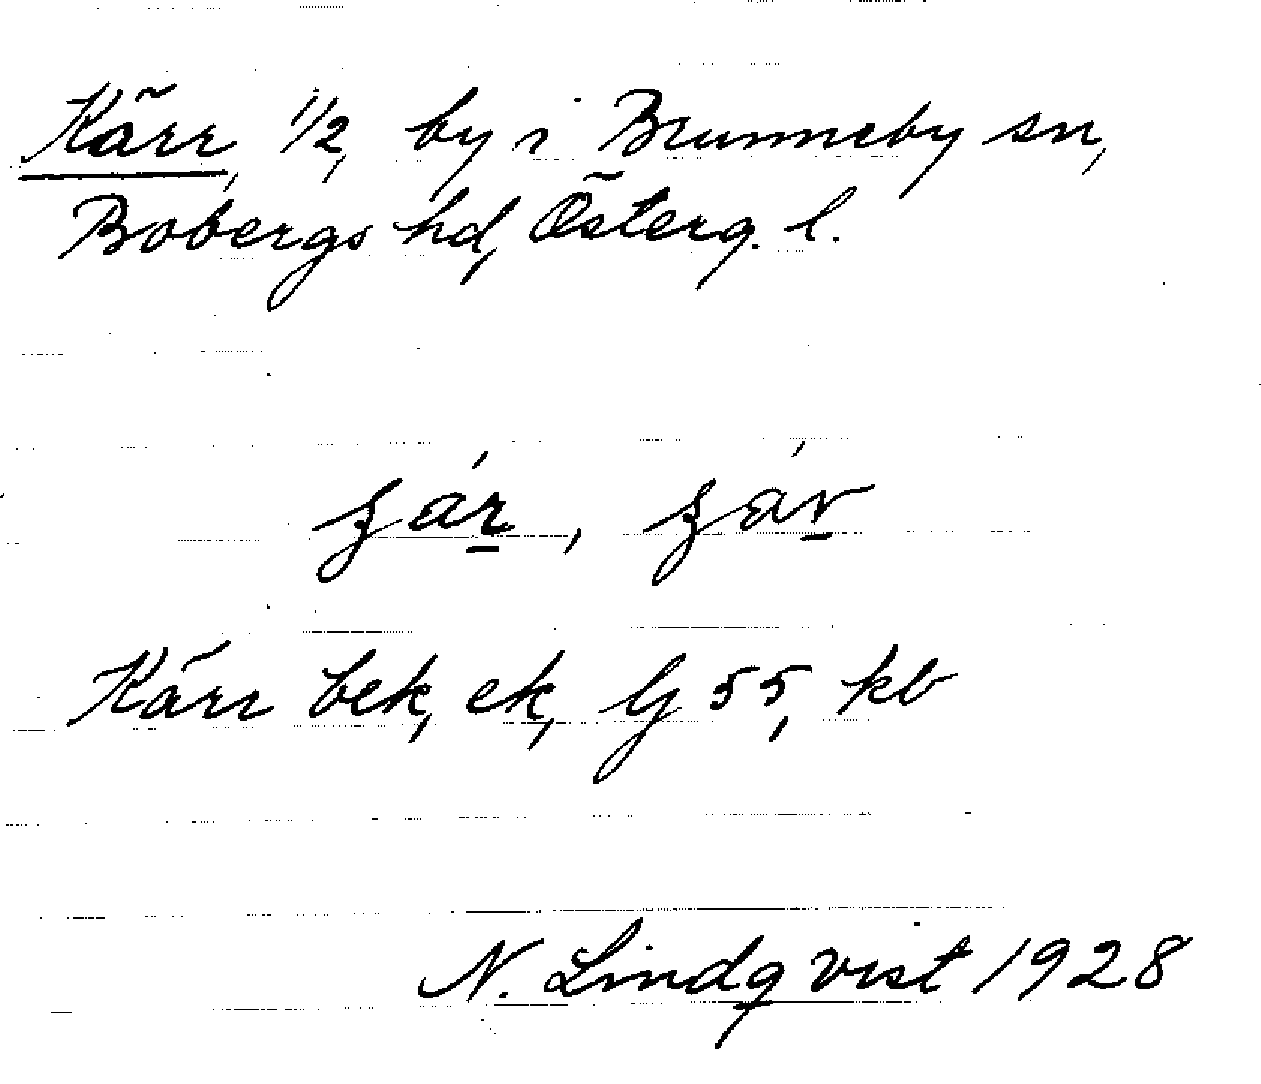 Kärr, 1/2, by i Brunneby sn,
Bobergs hd, Österg. l.
Kärr bek, ek, G 55, kb
N. Lindqvist 1928